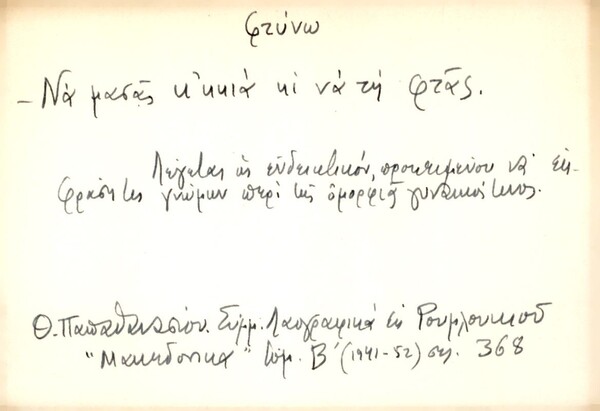 φτύνω
– Νὰ μασᾶς κ'κκιὰ κὶ νὰ τὴ φτᾶς.
Λέγεται ὡς ἐνδεικτικόν, προκειμένου νὰ ἐκ-
φράση τις γνώμην περὶ τῆς ὀμορφιᾶς γυναικός τινος.
Θ. Παπαθανασίου. Σύμμ. Λαογραφικὰ ἐκ Ρουμλουκιοῦ
"Μακεδονικὰ" τόμ. Β΄ (1941-52) σελ. 368